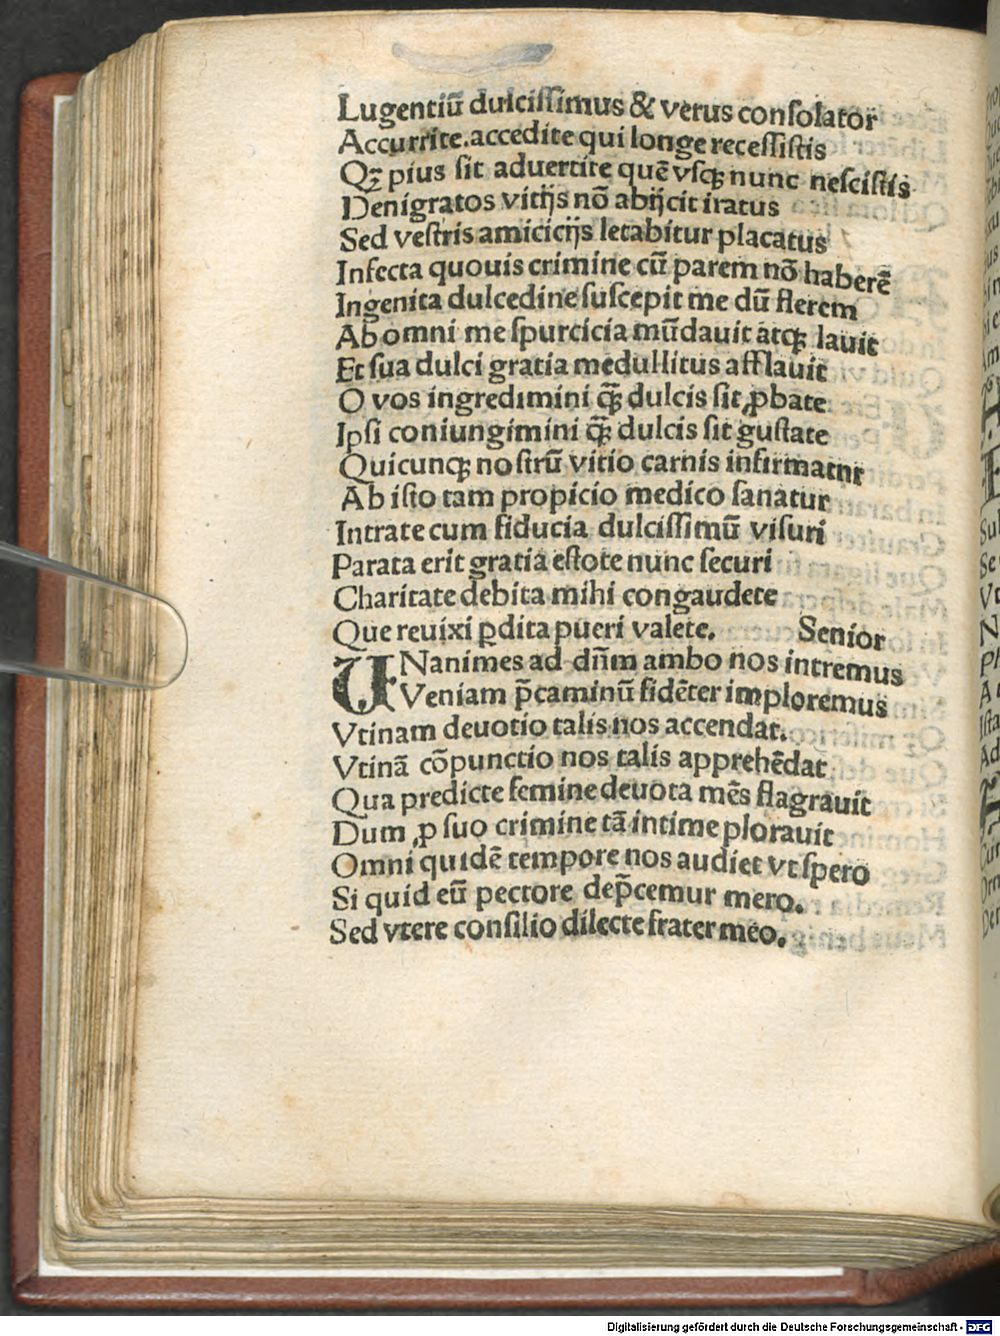 Lugentiū dulcissimus & verus consolator
Accurrite.accedite qui longe recessistis
Qꝫ pius sit aduertite quē vsqꝫ nunc nescistis
Denigratos vitijs nō abijcit iratus
Sed vestris amicicijs letabitur placatus
Infecta quouis crimine cū parem nō haberē
Ingenita dulcedine suscepit me dū flerem
Ab omni me spurcicia mūdauit atqꝫ lauit
Et sua dulci gratia medullitus afflauit
O vos ingredimini qꝫ̄ dulcis sit ꝓbate
Ipsi coniungimini qꝫ̄ dulcis sit gustate
Quicunqꝫ nostrū vitio carnis infirmatnr
Ab isto tam propicio medico sanatur
Intrate cum fiducia dulcissimū visuri
Parata erit gratia estote nunc securi
Charitate debita mihi congaudete
Que reuixi ꝑdita pueri valete. Senior
VNanimes ad dn̄m ambo nos intremus
Veniam p̄caminū fidēter imploremus
Vtinam deuotio talis nos accendat.
Vtinā cōpunctio nos talis apprehēdat
Qua predicte femine deuota mēs flagrauit
Dum ꝓ suo crimine tā intime plorauit
Omni quidē tempore nos audiet vt spero
Si quid eū pectore dep̄cemur mero.
Sed vtere consilio dilecte frater meo.
Digitalisierung gefördert durch die Deutsche Forschungsgemeinschaft - DFG